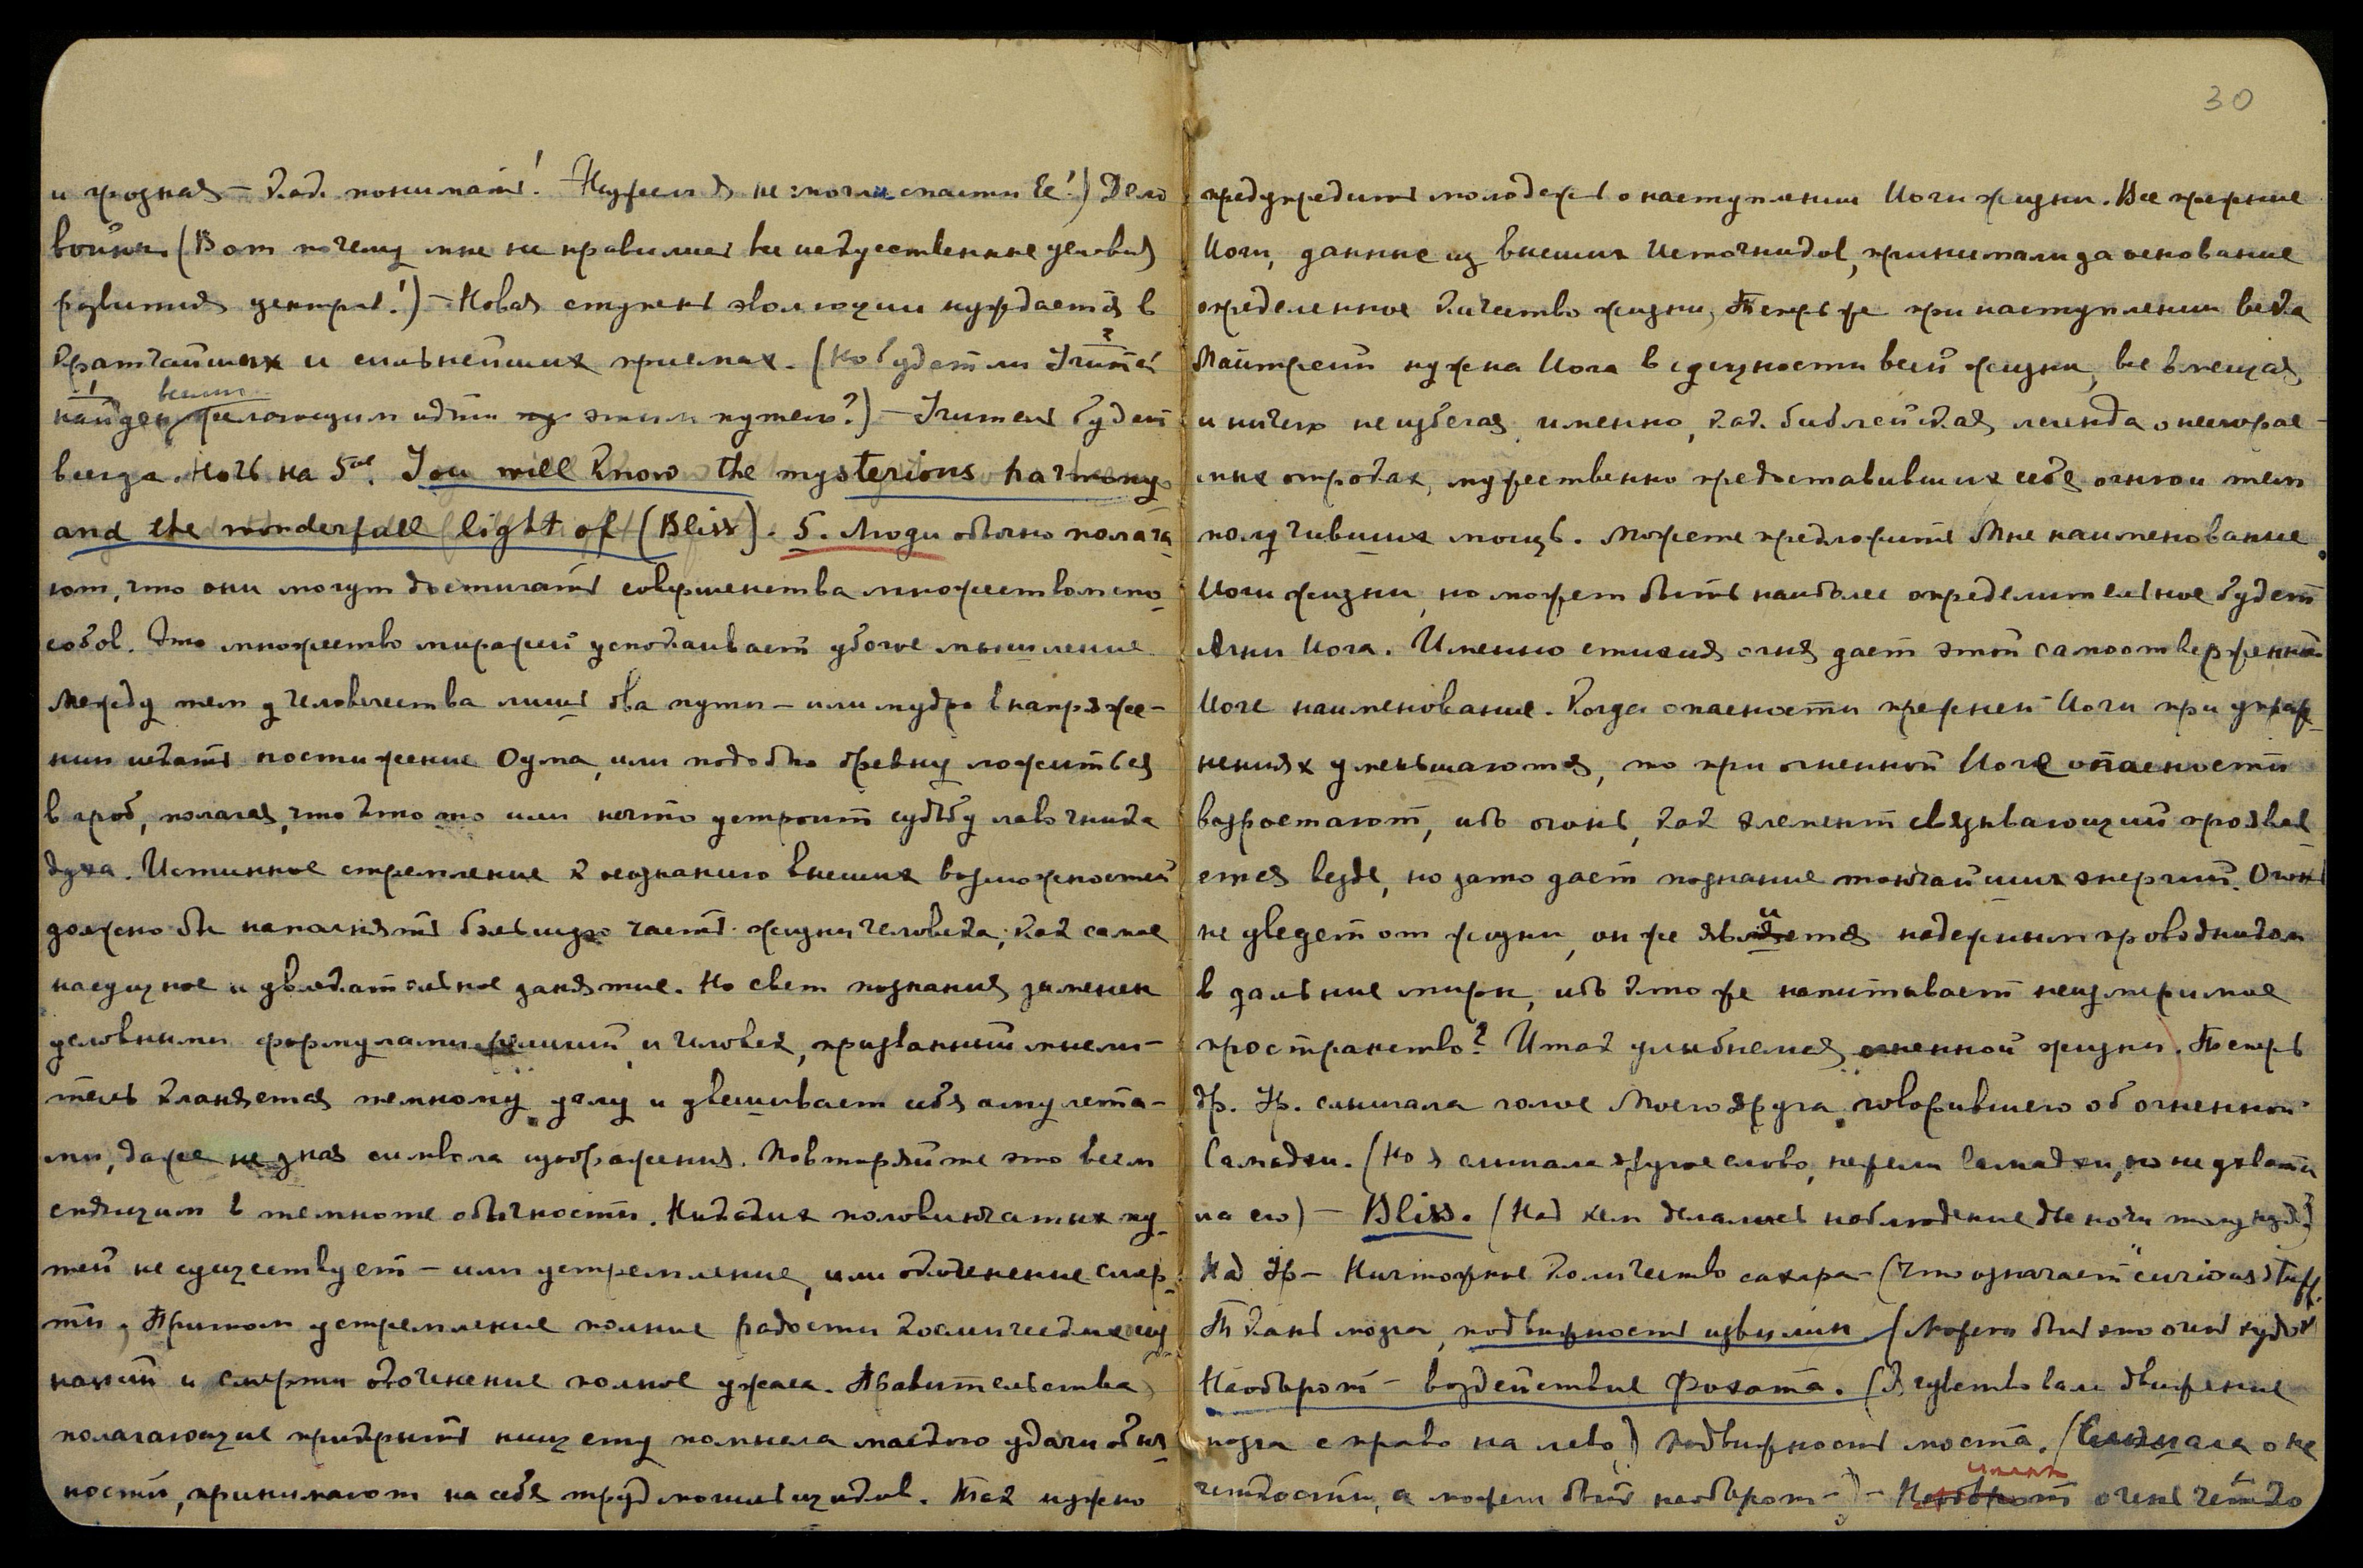 и грозная — как понимать! Неужели я не смогли спасти Её!) Дело
войны. (Вот почему мне не нравились все искусственные условия
развития центров!) — Новая ступень эволюции нуждается в
кратчайших и сильнейших приемах. (Но будет ли Учитель
найден всеми желающим идти этим путем?) — Учитель будет
всегда. Ночь на 5ое. You will know the mysterious harmony
and the wonderfull light of (Bliss). 5. Люди обычно полага-
ют, что они могут достигать совершенства множеством спо-
собов. Это множество миражей успокаивает убогое мышление
Между тем у человечества лишь два пути — или мудро в напряже-
нии искать постижение Оума, или подобно бревну ложиться
в гроб, полагая, что кто то или нечто устроит судьбу лавочника
духа. Истинное стремление к познанию высших возможностей
должно бы наполнять большую часть жизни человека, как самое
насущное и увлекательное занятие. Но свет познания заменен
условными формулами религий, и человек, призванный мысли-
тель кланяется темному углу и увешивает себя амулета-
ми, даже не зная символа изображения. Повторяйте это всем
спящим в темноте обычности. Никаких половинчатых пу-
тей не существует — или устремление, или окоченение смер-
ти, Притом устремление полное радости космических
наний и смерти окоченение полное ужаса. Правительства,
полагающие прикрыть нищету помысла маскою удачи обыч-
ности, принимают на себя труд могильщиков. Так нужно
30
предупредить молодежь о наступлении Йоги жизни. Все прежние
Йоги, данные из высших Источников, принимали за основание
определенное качество жизни, Теперь же при наступлении века
Майтрейи нужна Йога в сущности всей жизни, все вмещая,
и ничего не избегая, именно, как библейская легенда о несгорае-
мых отроках, мужественно предоставивших себя огню и тем
получивших мощь. Можете предложить Мне наименование
Йоги жизни, но может быть наиболее определительное будет
Агни Йога. Именно стихия огня дает этой самоотверженной
Йоге наименование. Когда опасности прежней Йоги при упраж-
нениях уменьшаются, то при огненной Йоге опасности
возрастают, ибо огонь, как элемент связывающий проявля
ется везде, но зато дает познание тончайших энергий. Огонь
не уведет от жизни, он же явится надежным проводником
в дальние миры, ибо кто же напитывает неизмеримое
пространство? Итак улыбнемся огненной жизни. Теперь
др. Ур. слышала голос Моего друга, говорившего об огненной
Самадхи. (Но я слышала другое слово, нежели Самадхи, но не
ла его) — Bliss. (Над кем делались наблюдение две ночи тому назад?)
Над Ур — Ничтожное количество сахара — (Что означает "curious stuff"
Ткань мозга, подвижность извилин. (Может быть это очень худо?)
Наоборот — воздействие Фохата. (Я чувствовала движение
мозга с право на лево) подвижность моста. (Слышала о не
четкости, а может быть наоборот —) — Наоборот именно очень четко